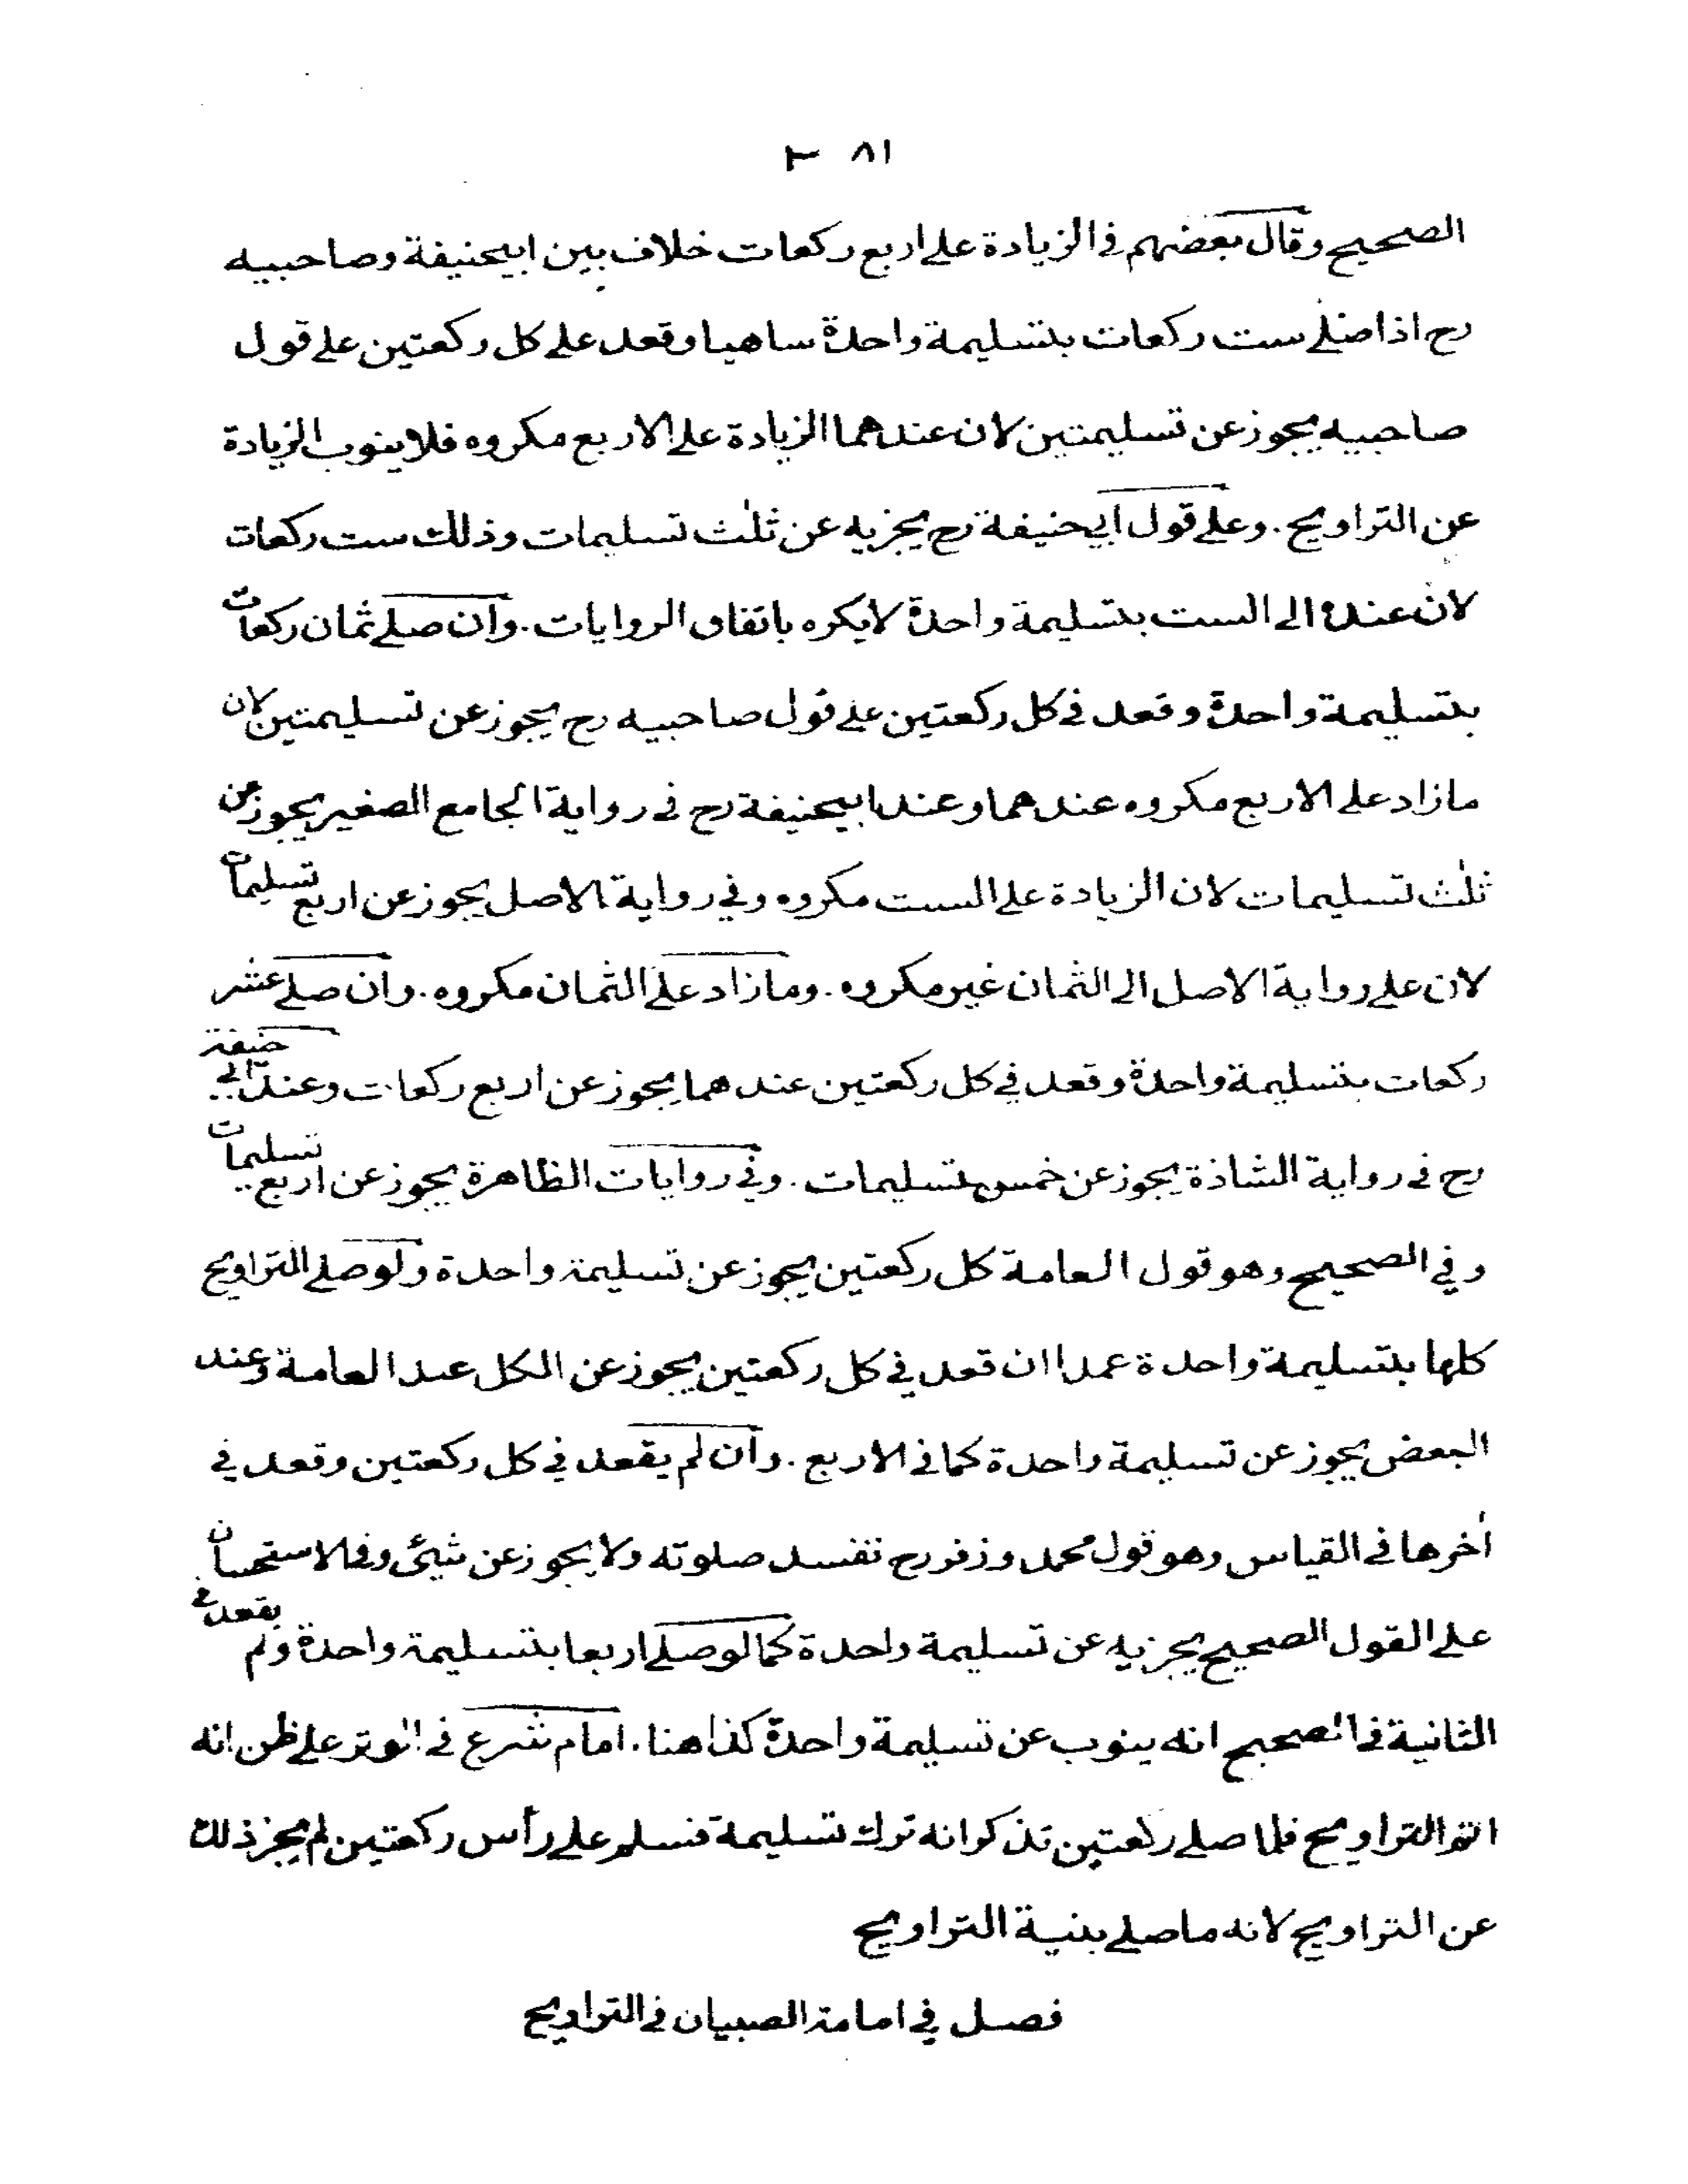 ٨١ ٢
الصحيح وقال بعضهم فى الزيادة على اربع ركعات خلاف بين ابيحنيفة وصاحبيه
رح اذا صلے ست ركعات بتسليمة واحدة ساهيا وقعد على كل ركعتين على قول
صاحبيه يجوز عن تسليمتين لان عندهما الزيادة على الاربع مكروه فلا ينوب الزيادة
عن التراويح. وعلى قول ابي حنيفة رح يجزيه عن ثلٰث تسليمات وذلك ست ركعات
لان عنده الى الست بتسليمة واحدة لا يكره باتفاق الروايات. وان صلے ثمان ركعات
بتسليمة واحدة وقعد في كل ركعتين على قول صاحبيه رح يجوز عن تسليمتين لان
مازاد على الاربع مكروه عندهما وعند ابيحنيفة رح فى رواية الجامع الصغير يجوز عن
ثلٰث تسليمات لان الزيادة على الست مكروه وفي رواية الاصل يجوز عن اربع تسليمات
لان على رواية الاصل الى الثمان غير مكروه. ومازاد على الثمان مكروه. وان صلے عشر
ركعات بتسليمة واحدة وقعد في كل ركعتين عندهما يجوز عن اربع ركعات وعند ابي حنيفة
رح فى رواية الشاذة يجوز عن خمس تسليمات. وفي روايات الظاهرة يجوز عن اربع تسليمات
وفي الصحيح وهو قول العامة كل ركعتين يجوز عن تسليمة واحدة ولو صلے التراويح
كلها بتسليمة واحدة عمدا ان قعد في كل ركعتين يجوز عن الكل عند العامة وعند
البعض يجوز عن تسليمة واحدة كما فى الاربع. وان لم يقعد في كل ركعتين وقعد في
اٰخرها فى القياس وهو قول محمد وزفر رح تفسد صلوته ولا يجوز عن شيئ وفى الاستحسان
على القول الصحيح يجزيه عن تسليمة واحدة كما لو صلے اربعا بتسليمة واحدة ولم يقعد فى
الثانية فى الصحيح انه ينوب عن تسليمة واحدة كذا هنا. امام شرع فى الوتر على ظن انه
اتم التراويح فلما صلے ركعتين تذكر انه ترك تسليمة فسلم على رأس ركعتين لم يجز ذلك
عن التراويح لانه ما صلے بنية التراويح
فصل في امامة الصبيان فى التراويح